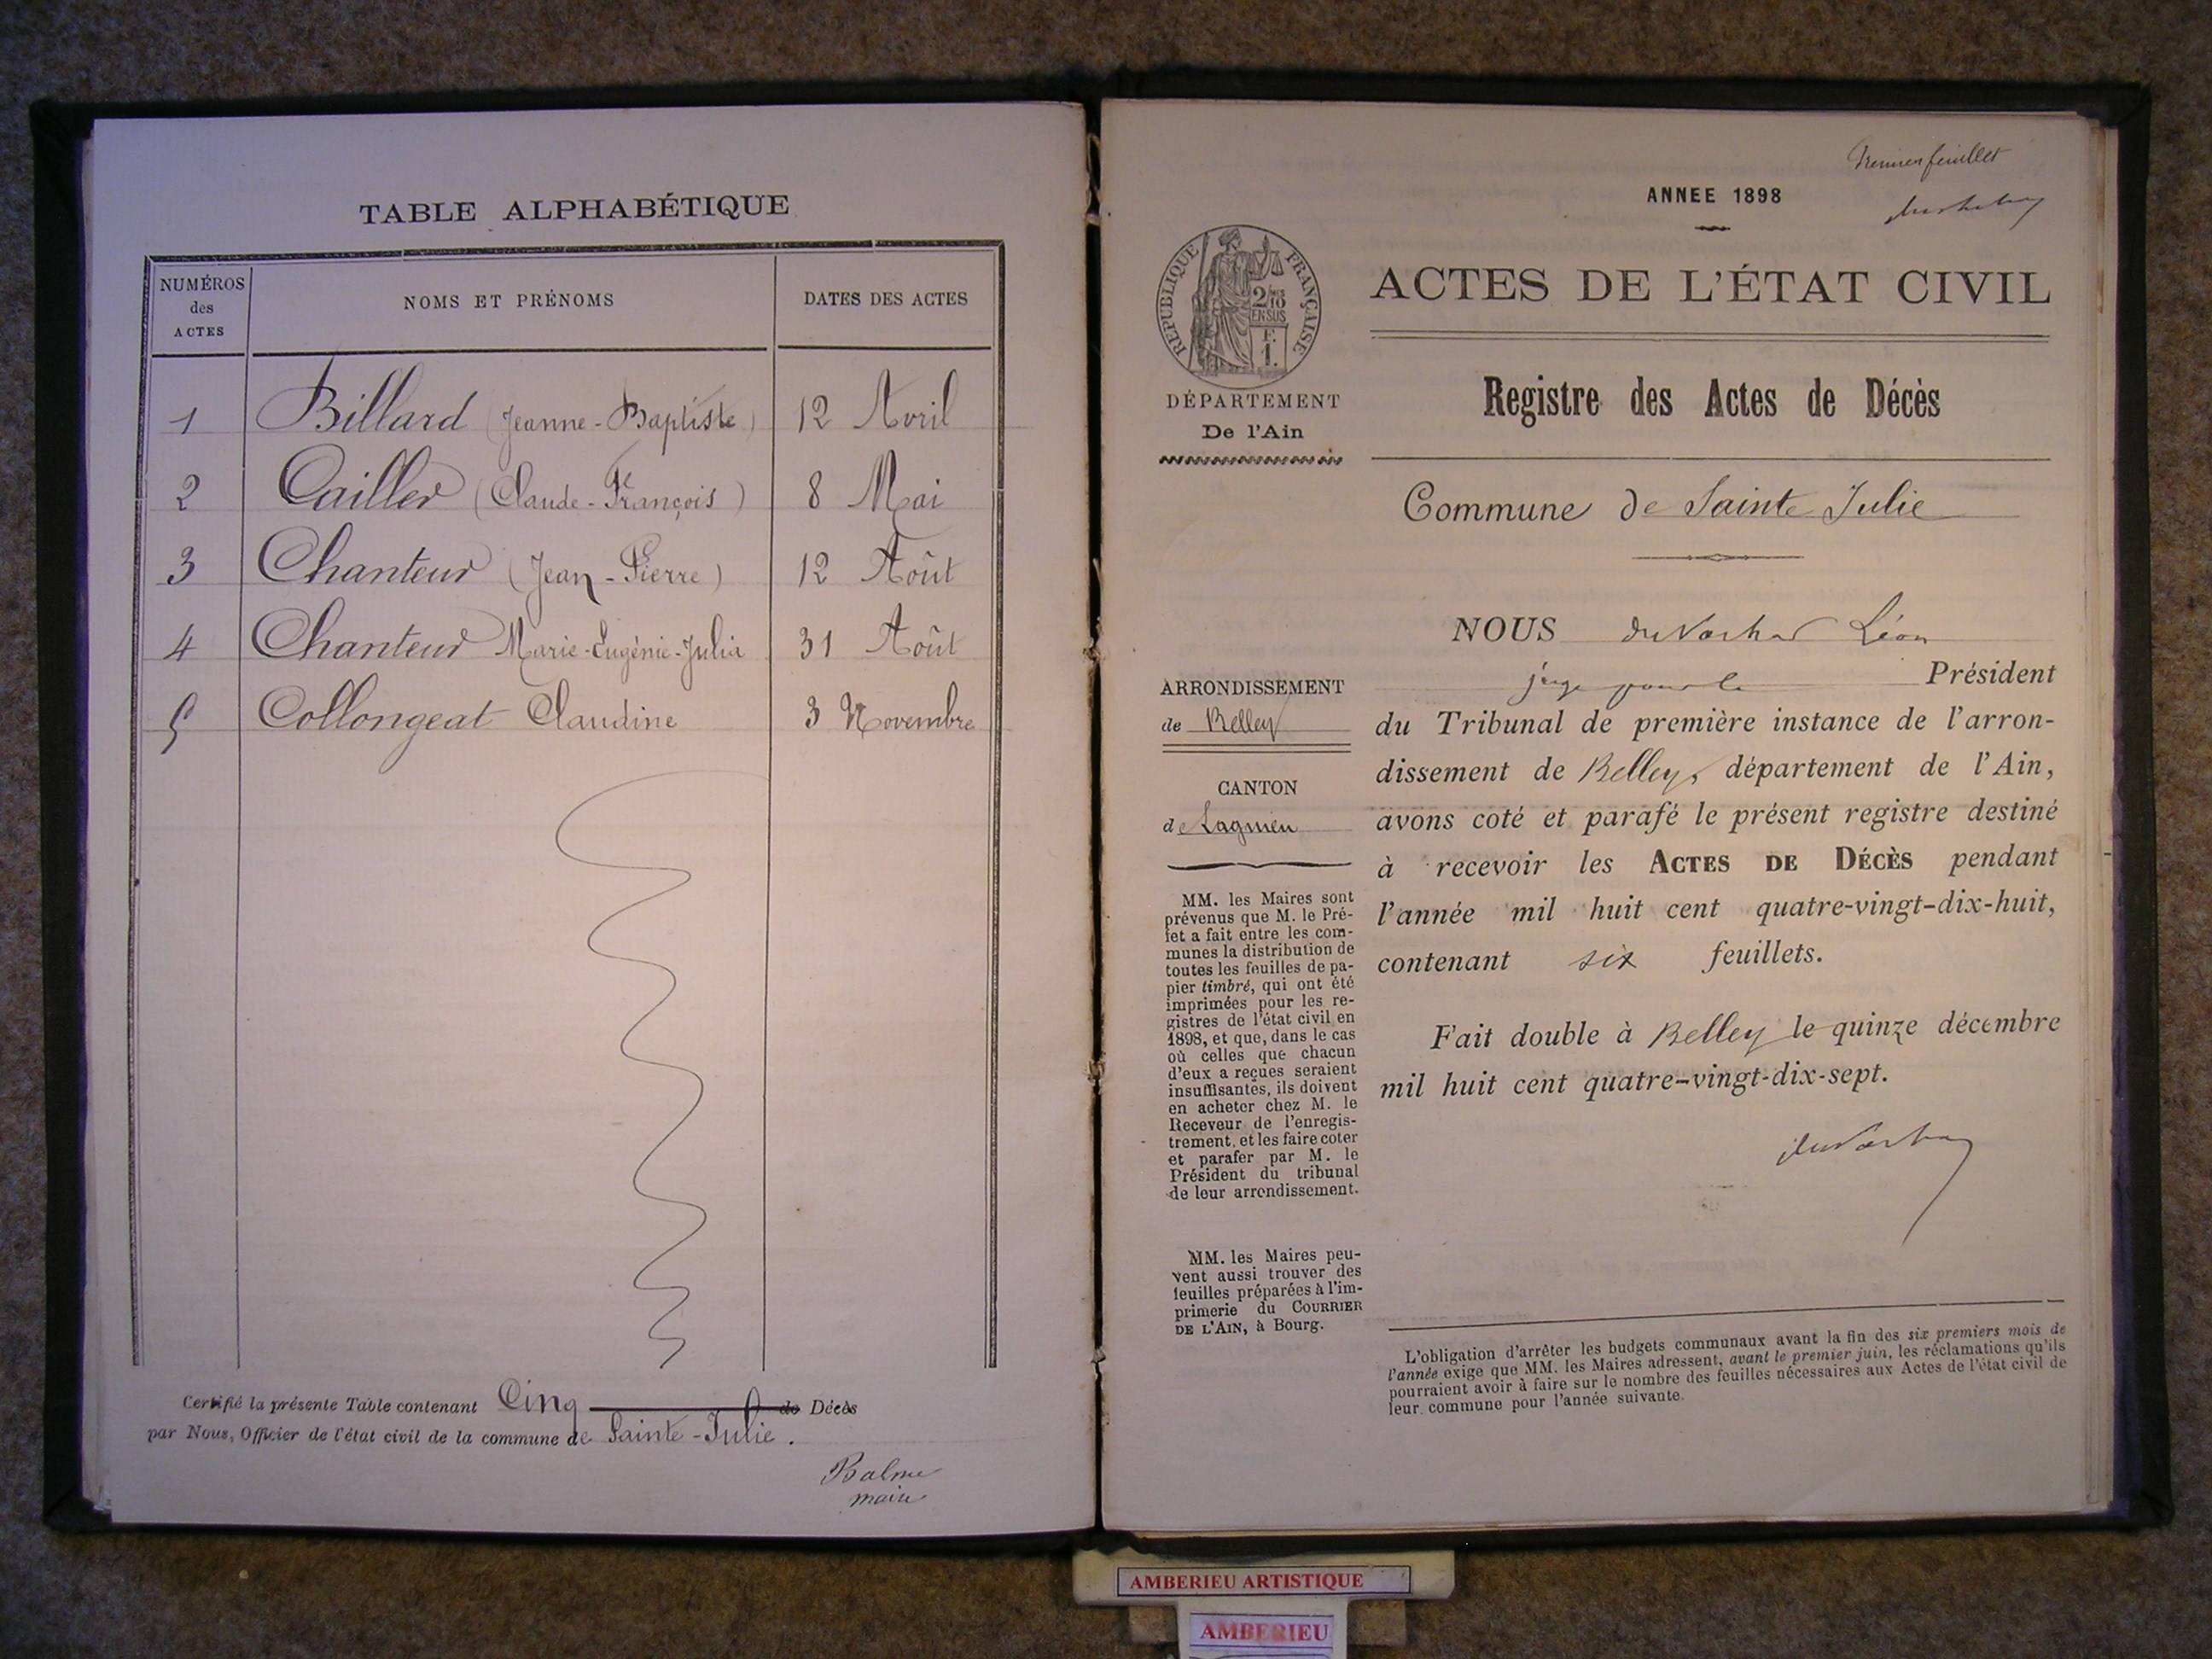 TABLE ALPHABÉTIQUE
NUMÉROS
des
ACTES
NOMS ET PRÉNOMS
DATES DES ACTES
1 Billard (Jeanne-Baptiste) 12 Avril
2 Cailler (Claude-François) 8 Mai
3 Chanteur (Jean-Pierre) 12 Août
4 Chanteur Marie-Eugénie-Julia 31 Août
5 Collongeat Claudine 3 Novembre
Certifié la présente Table contenant Cinq de Décès
par Nous, Officier de l'état civil de la commune de Sainte-Julie.
Balme
maire
Premier feuillet
ANNEE 1898
RÉPUBLIQUE FRANÇAISE
2/10
EN SUS
F.
1.
ACTES DE L'ÉTAT CIVIL
DÉPARTEMENT
De l'Ain
Registre des Actes de Décès
Commune de Sainte Julie
NOUS Léon
juge pour le Président
du Tribunal de première instance de l'arron-
dissement de Belley, département de l'Ain,
avons coté et parafé le présent registre destiné
à recevoir les ACTES DE DÉCÈS pendant
l'année mil huit cent quatre-vingt-dix-huit,
contenant six feuillets.
Fait double à Belley le quinze décembre
mil huit cent quatre-vingt-dix-sept.
ARRONDISSEMENT
de Belley
CANTON
de Lagnieu
MM. les Maires sont
prévenus que M. le Pré-
fet a fait entre les com-
munes la distribution de
toutes les feuilles de pa-
pier timbré, qui ont été
imprimées pour les re-
gistres de l'état civil en
1898, et que, dans le cas
où celles que chacun
d'eux a reçues seraient
insuffisantes, ils doivent
en acheter chez M. le
Receveur de l'enregis-
trement, et les faire coter
et parafer par M. le
Président du tribunal
de leur arrondissement.
MM. les Maires peu-
vent aussi trouver des
feuilles préparées à l'im-
primerie du COURRIER
DE L'AIN, à Bourg.
L'obligation d'arrêter les budgets communaux avant la fin des six premiers mois de
l'année exige que MM. les Maires adressent, avant le premier juin, les réclamations qu'ils
pourraient avoir à faire sur le nombre des feuilles nécessaires aux Actes de l'état civil de
leur commune pour l'année suivante.
AMBERIEU ARTISTIQUE
AMBERIEU